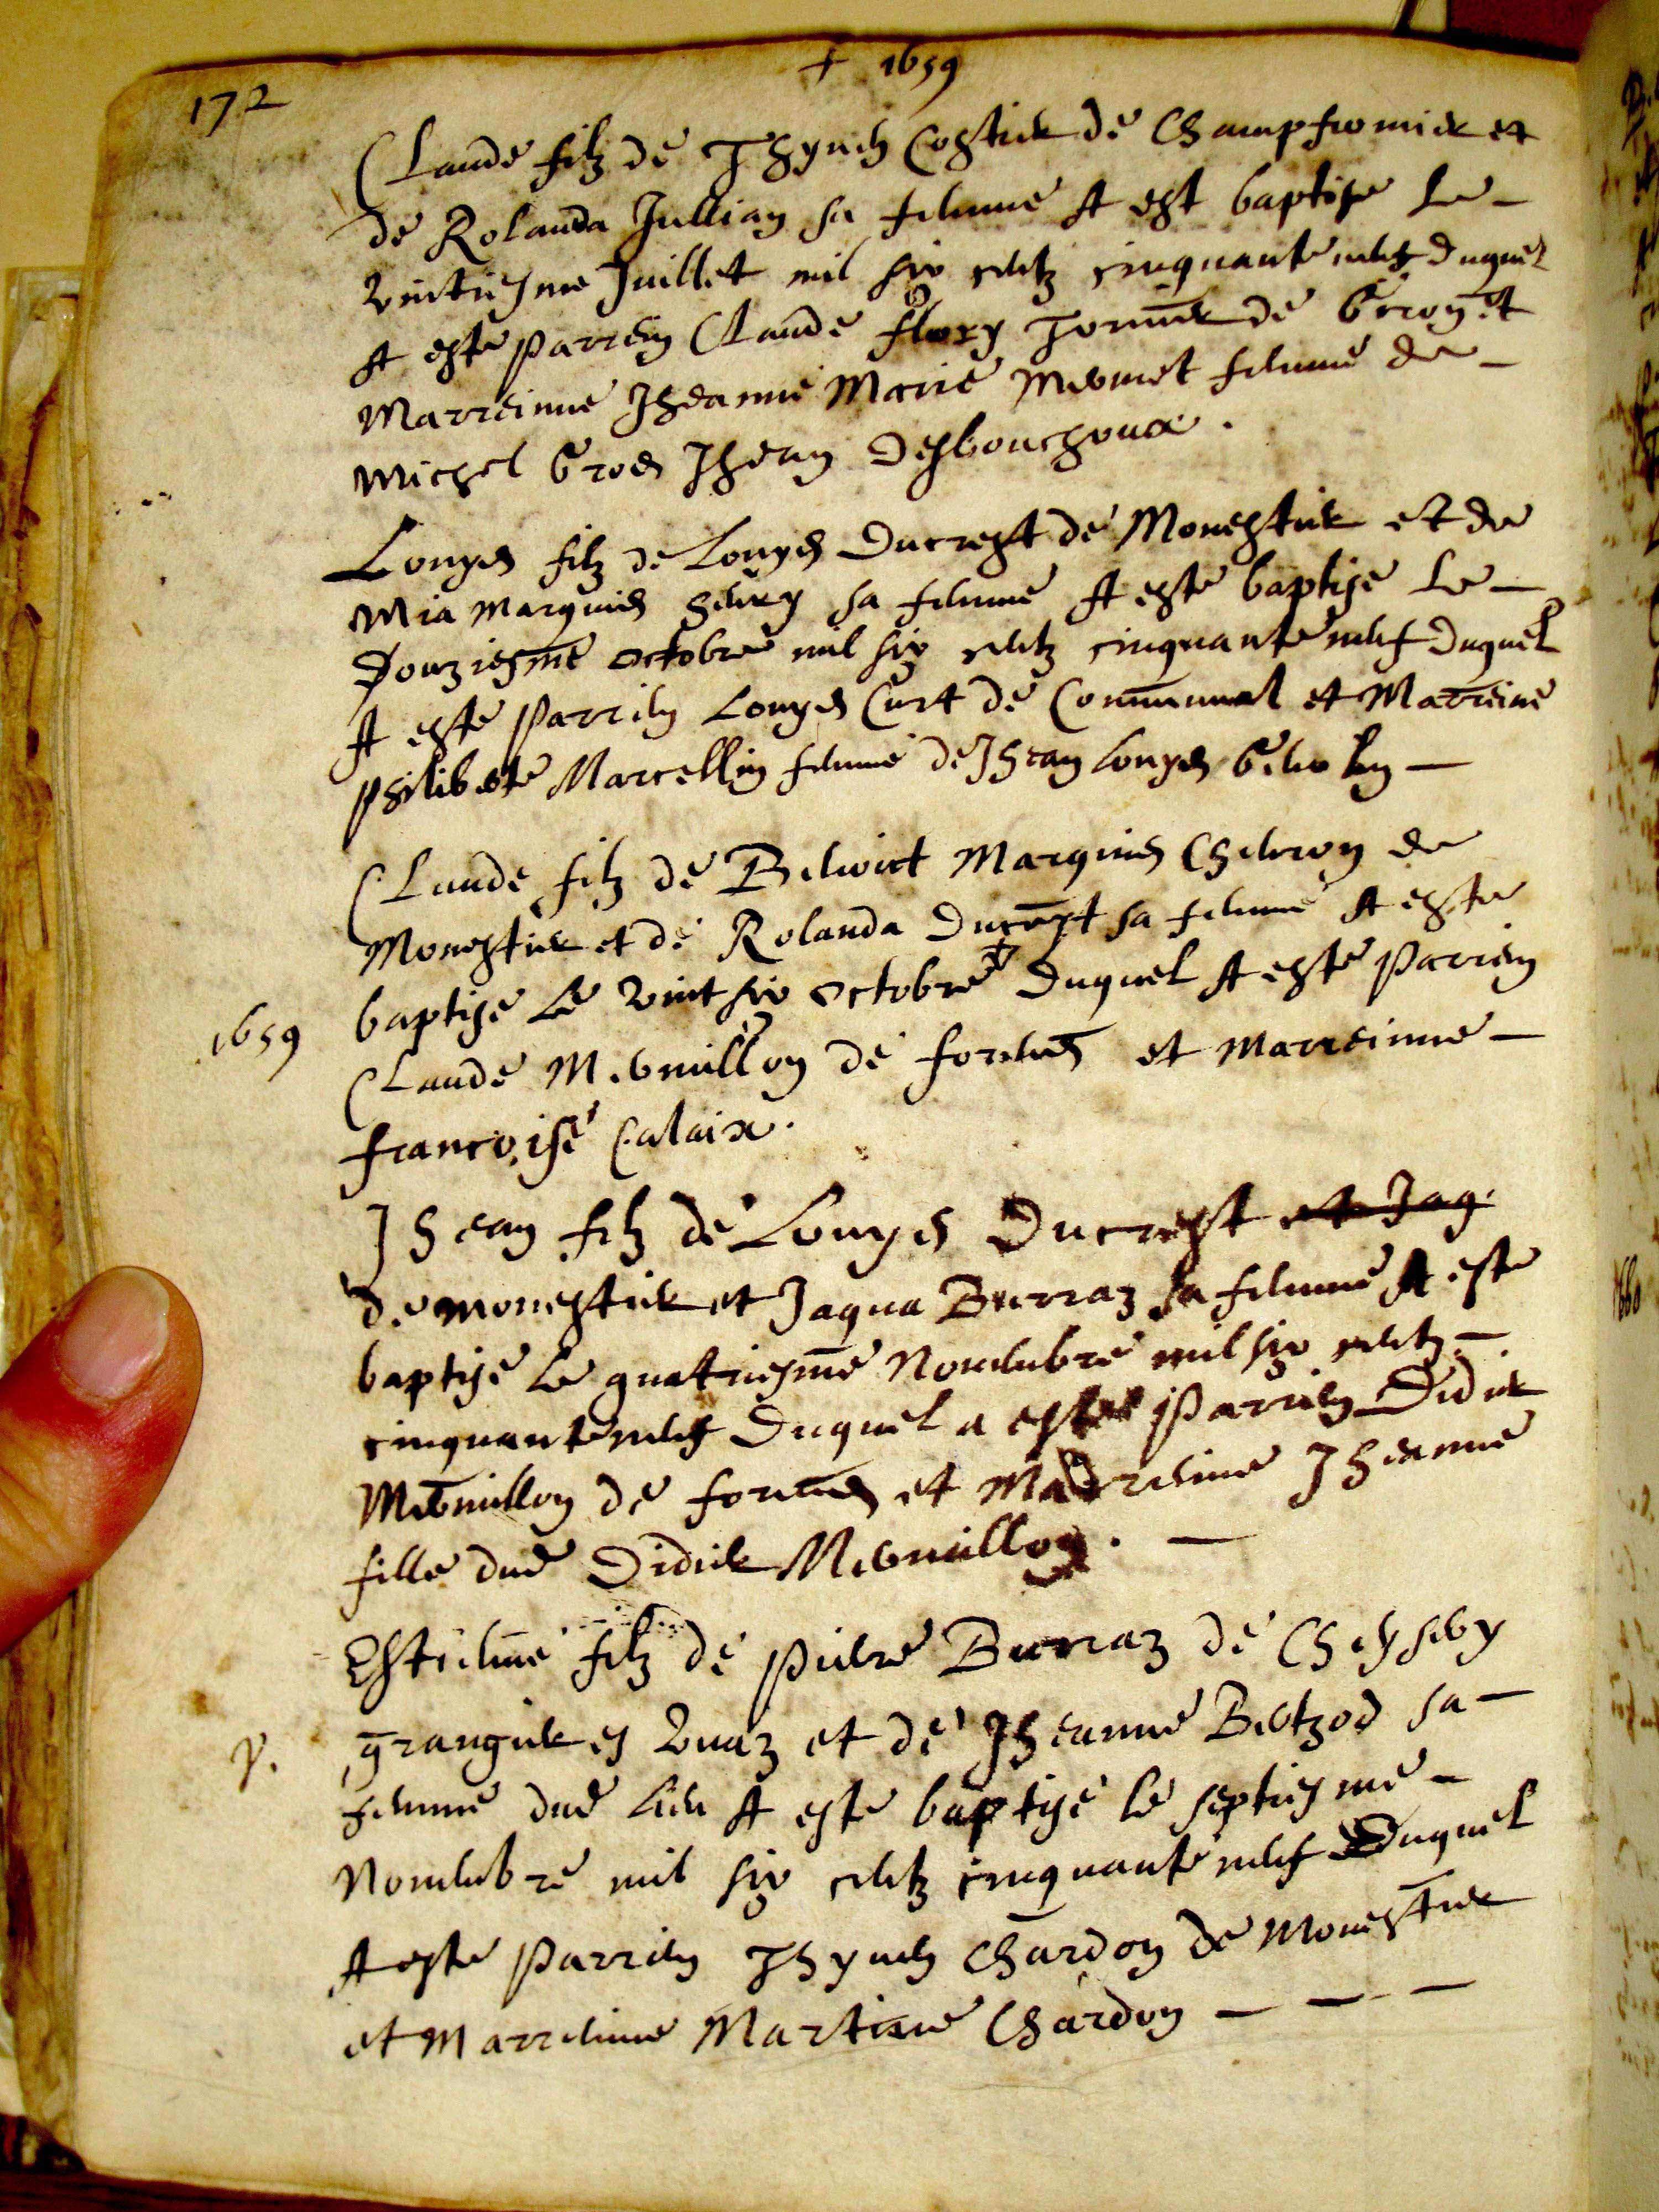 172
+ 1659
Claude filz de Thyven Costier de Champfromier et
de Rolanda Jullian sa femme A est baptise Le -
vintiesme Juillet mil six centz cinquante neufz duquel
A este parrein Claude flory Tornier de et
Marreinne Jheanne Marie Mermet femme de -
Michel Gros Jhean Desbouchoux.
Louys filz de Louys Ducrest de Monestier et de
Mia Marquis sa femme A este baptise Le -
Douziesme octobre mil six centz cinquante neuf duquel
A este Parrein Louys Curt de Communal et Marreine
philiberte Marcellin femme de Jhean Louys -
Claude filz de Benoict Marquis de
Monestier et de Rolanda Ducrest sa femme A este
1659
baptise Le vint six octobre duquel A este Parrein
Claude Mermillon de forens et Marreinne -
francoise Calaix.
Jhean filz de Louys Ducrest et Jaq.
de monestier et Jaqua Burraz sa femme A este
baptise Le quatriesme Novembre mil six centz -
cinquante neufz Duquel a este Parrein Didier
Mermillon de forens et Marreinne Jheanne
fille dud Didier Mermillon. -
Estienne filz de pierre Burraz de Chesery
grangier es Vuaz et de Jheanne Bertzod sa -
femme dud Lieu A este baptise le septiesme -
Novembre mil six centz cinquante neuf Duquel
A este Parrein Thyven Chardon de Monestier
et Marreinne Martine Chardon - - -